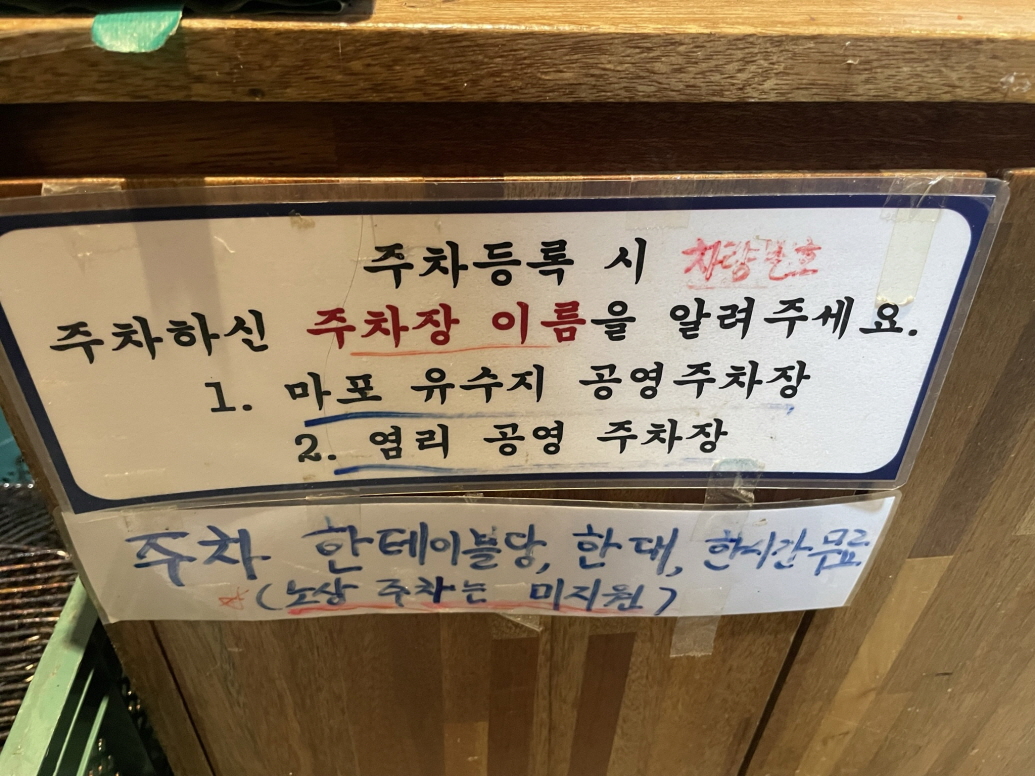 주차등록 시 차량번호
주차하신 주차장 이름을 알려주세요.
1. 마포 유수지 공영주차장
2. 염리 공영 주차장
주차 한테이블당, 한대, 한시간무료
☆(노상 주차는 미지원)